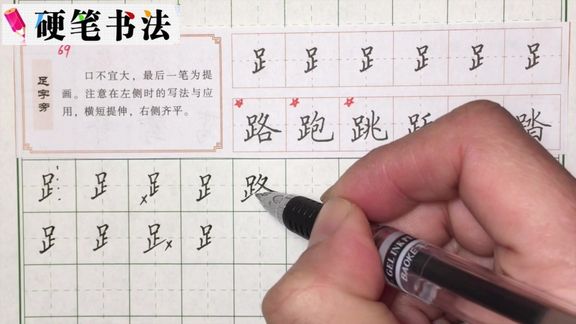 硬笔书法
69
足字旁
口不宜大，最后一笔为提
画。注意在左侧时的写法与应
用，横短提伸，右侧齐平。
𧾷 𧾷 𧾷 𧾷 𧾷 𧾷
路 跑 跳 踏
𧾷 𧾷 𧾷 𧾷 路
𧾷 𧾷 𧾷 𧾷
GEL INK
BAOKE